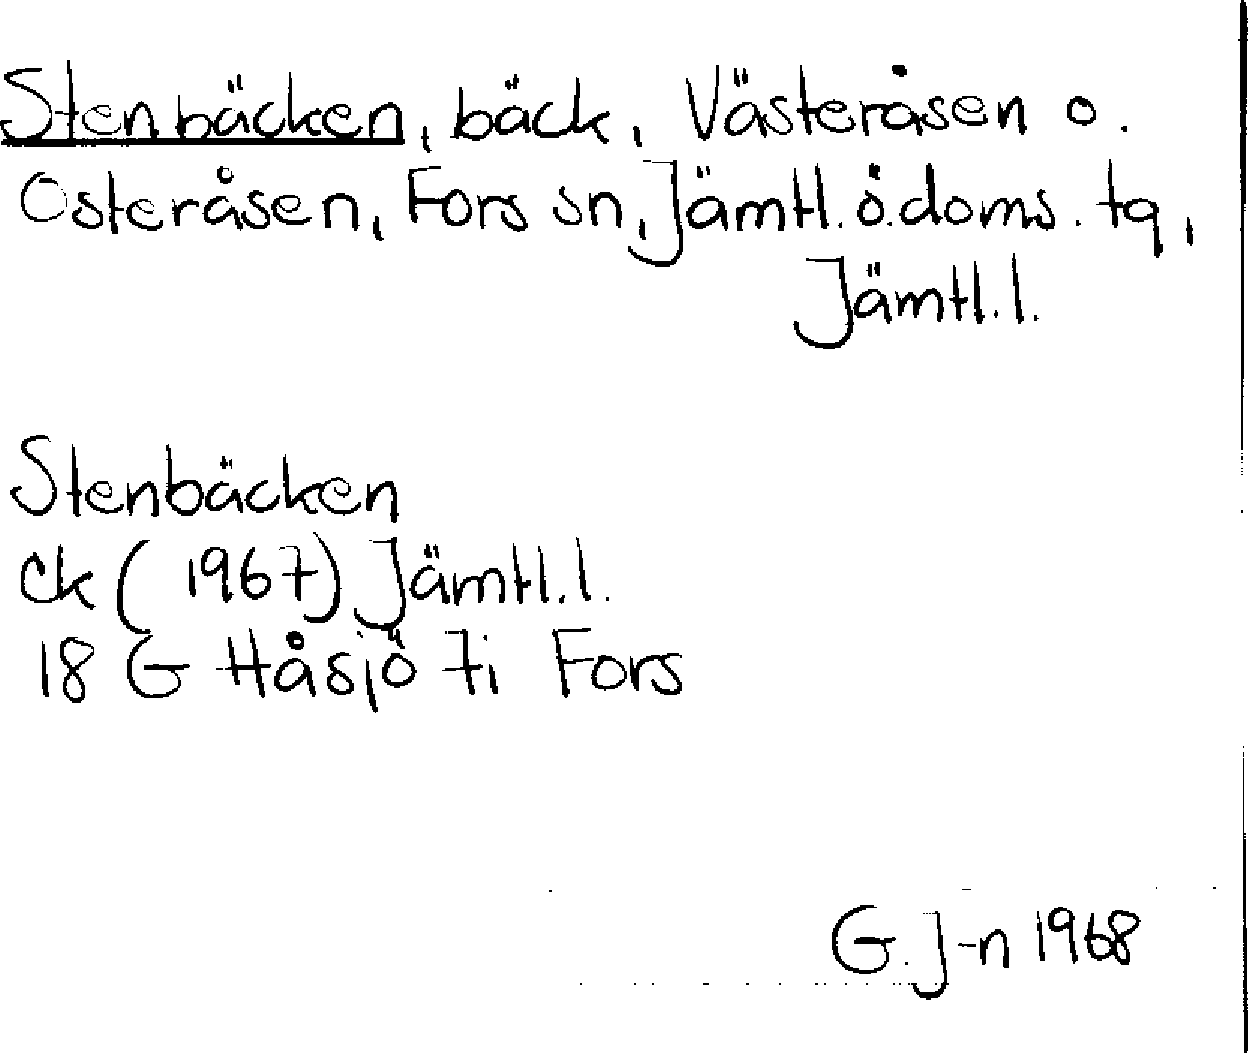 Stenbäcken, bäck, Västeråsen o.
Osteråsen, Fors sn, Jämtl. ö. doms. tg,
Jämtl. l.
Stenbäcken
ck (1967) Jämtl. l.
18 G Håsjö 7i Fors
G. J-n 1968